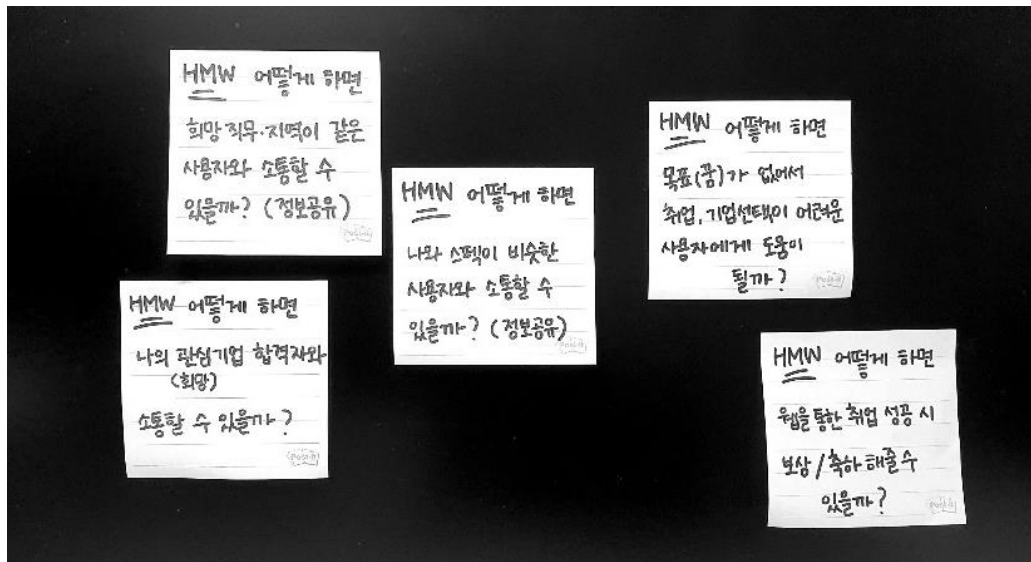 HMW 어떻게 하면
희망 직무·지역이 같은
사용자와 소통할 수
있을까? (정보공유)
HMW 어떻게 하면
나의 관심기업 합격자와
(희망)
소통할 수 있을까?
HMW 어떻게 하면
나와 스펙이 비슷한
사용자와 소통할 수
있을까? (정보공유)
HMW 어떻게 하면
목표(꿈)가 없어서
취업, 기업선택이 어려운
사용자에게 도움이
될까?
HMW 어떻게 하면
웹을 통한 취업 성공 시
보상/축하 해줄 수
있을까?